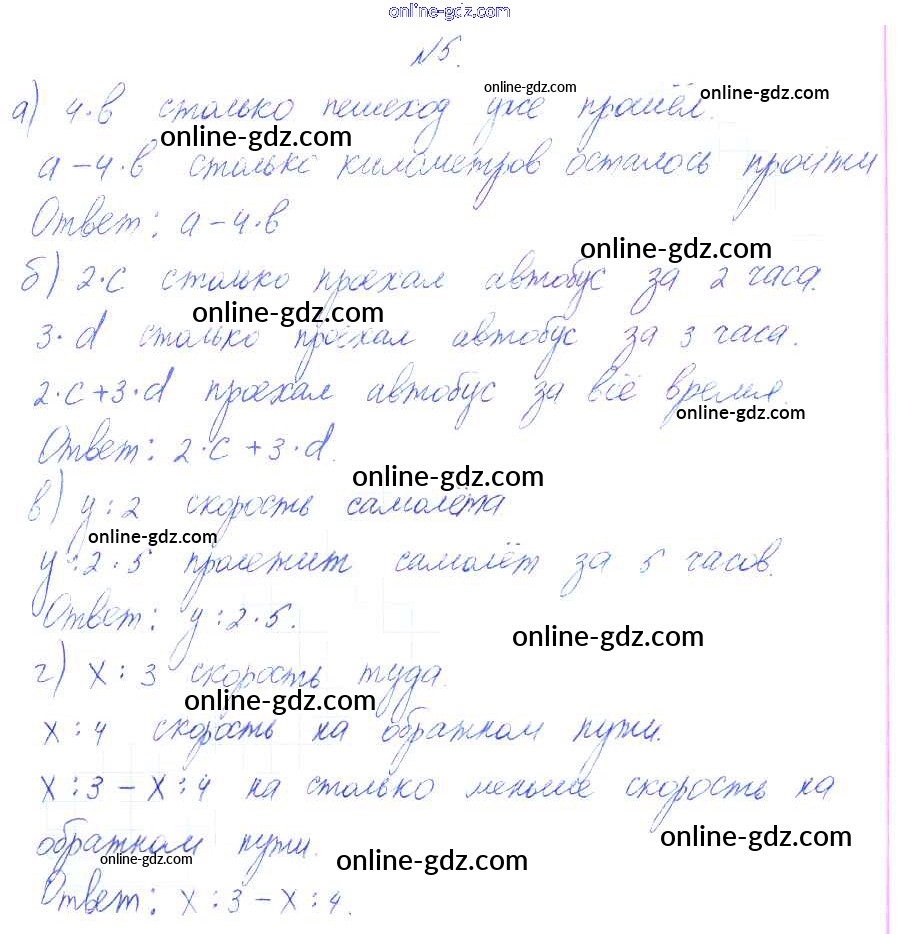 online-gdz.com
N5.
online-gdz.com
online-gdz.com
а) 4·в столько пешеход уже прошёл.
online-gdz.com
а-4·в столько километров осталось пройти
Ответ: а-4·в
online-gdz.com
б) 2·c столько проехал автобус за 2 часа.
online-gdz.com
3·d столько проехал автобус за 3 часа.
2·c+3·d проехал автобус за всё время.
online-gdz.com
Ответ: 2·c+3·d.
online-gdz.com
в) y:2 скорость самолёта
online-gdz.com
y:2·5 пролетит самолёт за 5 часов.
Ответ: y:2·5.
online-gdz.com
г) x:3 скорость туда.
online-gdz.com
x:4 скорость на обратном пути.
x:3-x:4 на столько меньше скорость на
обратном пути.
online-gdz.com
online-gdz.com
online-gdz.com
Ответ: x:3-x:4.